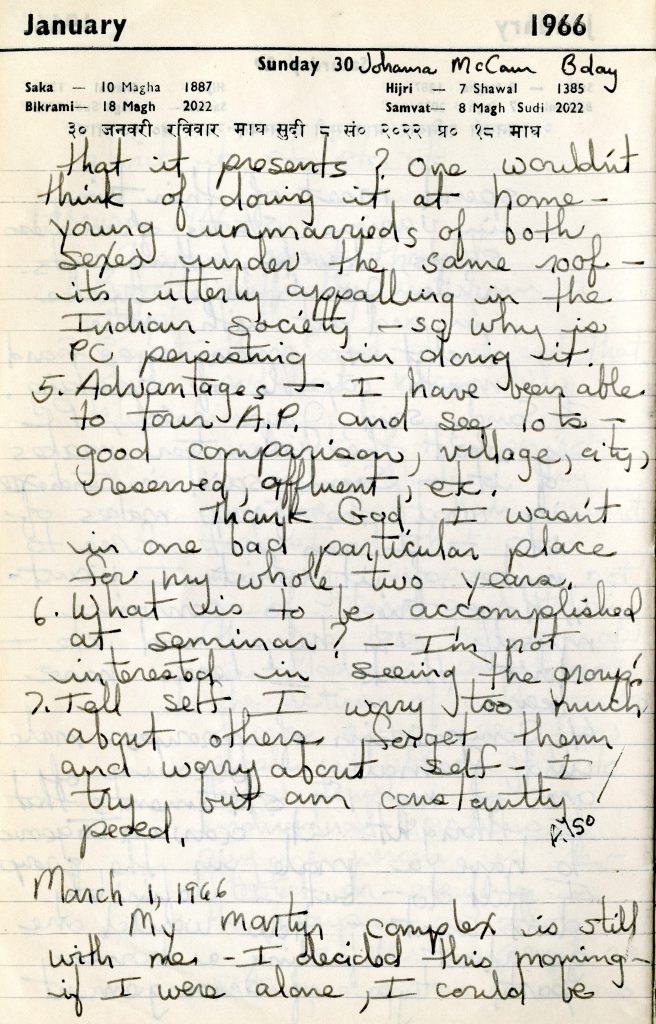 January 1966
Sunday 30 Johanna McCann Bday
Saka — 10 Magha 1887 Hijri — 7 Shawal 1385
Bikrami — 18 Magh 2022 Samvat — 8 Magh Sudi 2022
३० जनवरी रविवार माघ सुदी ८ सं० २०२२ प्र० १८ माघ
that it presents? One wouldn't
think of doing it at home –
young unmarrieds of both
sexes under the same roof –
its utterly appalling in the
Indian Society – so why is
PC persisting in doing it.
5. Advantages – I have been able
to tour A.P. and see lots –
good comparison, village, city,
reserved, affluent, etc.
Thank God, I wasn't
in one bad particular place
for my whole two years.
6. What is to be accomplished
at seminar? – I'm not
interested in seeing the group.
7. Tell self I worry too much
about others forget them
and worry about self – I
try, but am constantly
peeed.
March 1, 1966
My martyr complex is still
with me – I decided this morning –
if I were alone, I could be